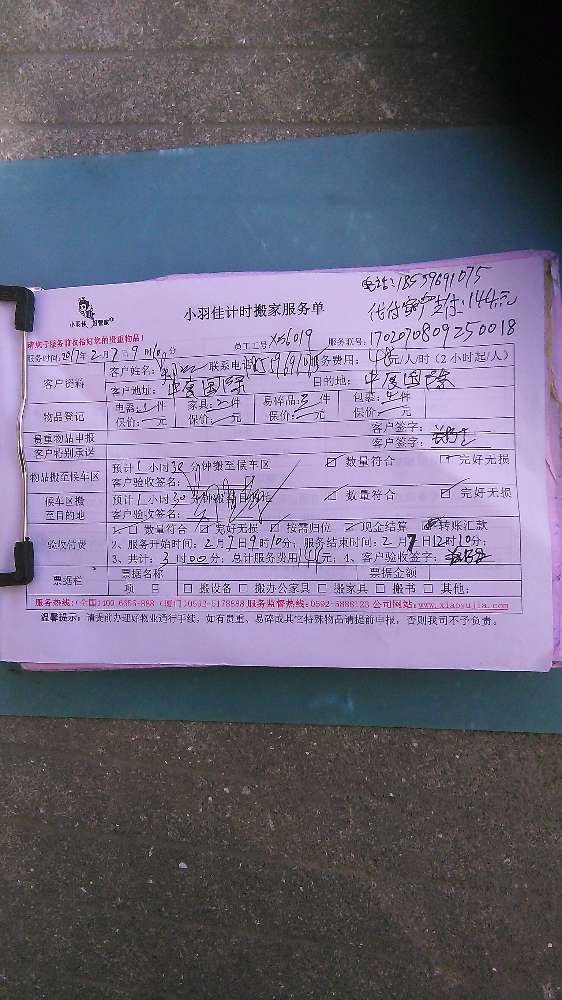 电话:18559691075
代付客户支付:144元
小羽佳 管家
小羽佳计时搬家服务单
请您于服务前收拾好您的贵重物品! 员工工号 Xm6019 服务联号: 1702070809250018
服务时间:2017年2月7日9时10分
客户资料 客户姓名: 联系电话 服务费用: 48元/人/时(2小时起/人)
客户地址: 中厦国际 目的地: 中厦国际
物品登记 电器: 件 家具: 件 易碎品: 件 包装: 件
保价: 元 保价: 元 保价: 元 保价: 元
贵重物品申报 客户签字:
客户特别承诺 客户签字:
物品搬至候车区 预计1小时30分钟搬至候车区 数量符合 完好无损
客户验收签名:
候车区搬至目的地 预计1小时30分钟搬至目的地 数量符合 完好无损
客户验收签名:
验收付费 1、数量符合 完好无损 按需归位 现金结算 转账汇款
2、服务开始时间: 2月7日9时10分; 服务结束时间: 2月7日12时10分;
3、共计: 3时00分; 总计服务费用144元; 4、客户验收签字:
票据栏 票据名称 票据金额
项 目 搬设备 搬办公家具 搬家具 搬书 其他:
服务热线: 全国400-6655-888 (厦门)0592-5178888 服务监督热线:0592-5888123 公司网站:www.xiaoyujia.com
温馨提示: 请提前办理好物业通行手续, 如有贵重、易碎或其它特殊物品请提前申报, 否则我司不予负责。